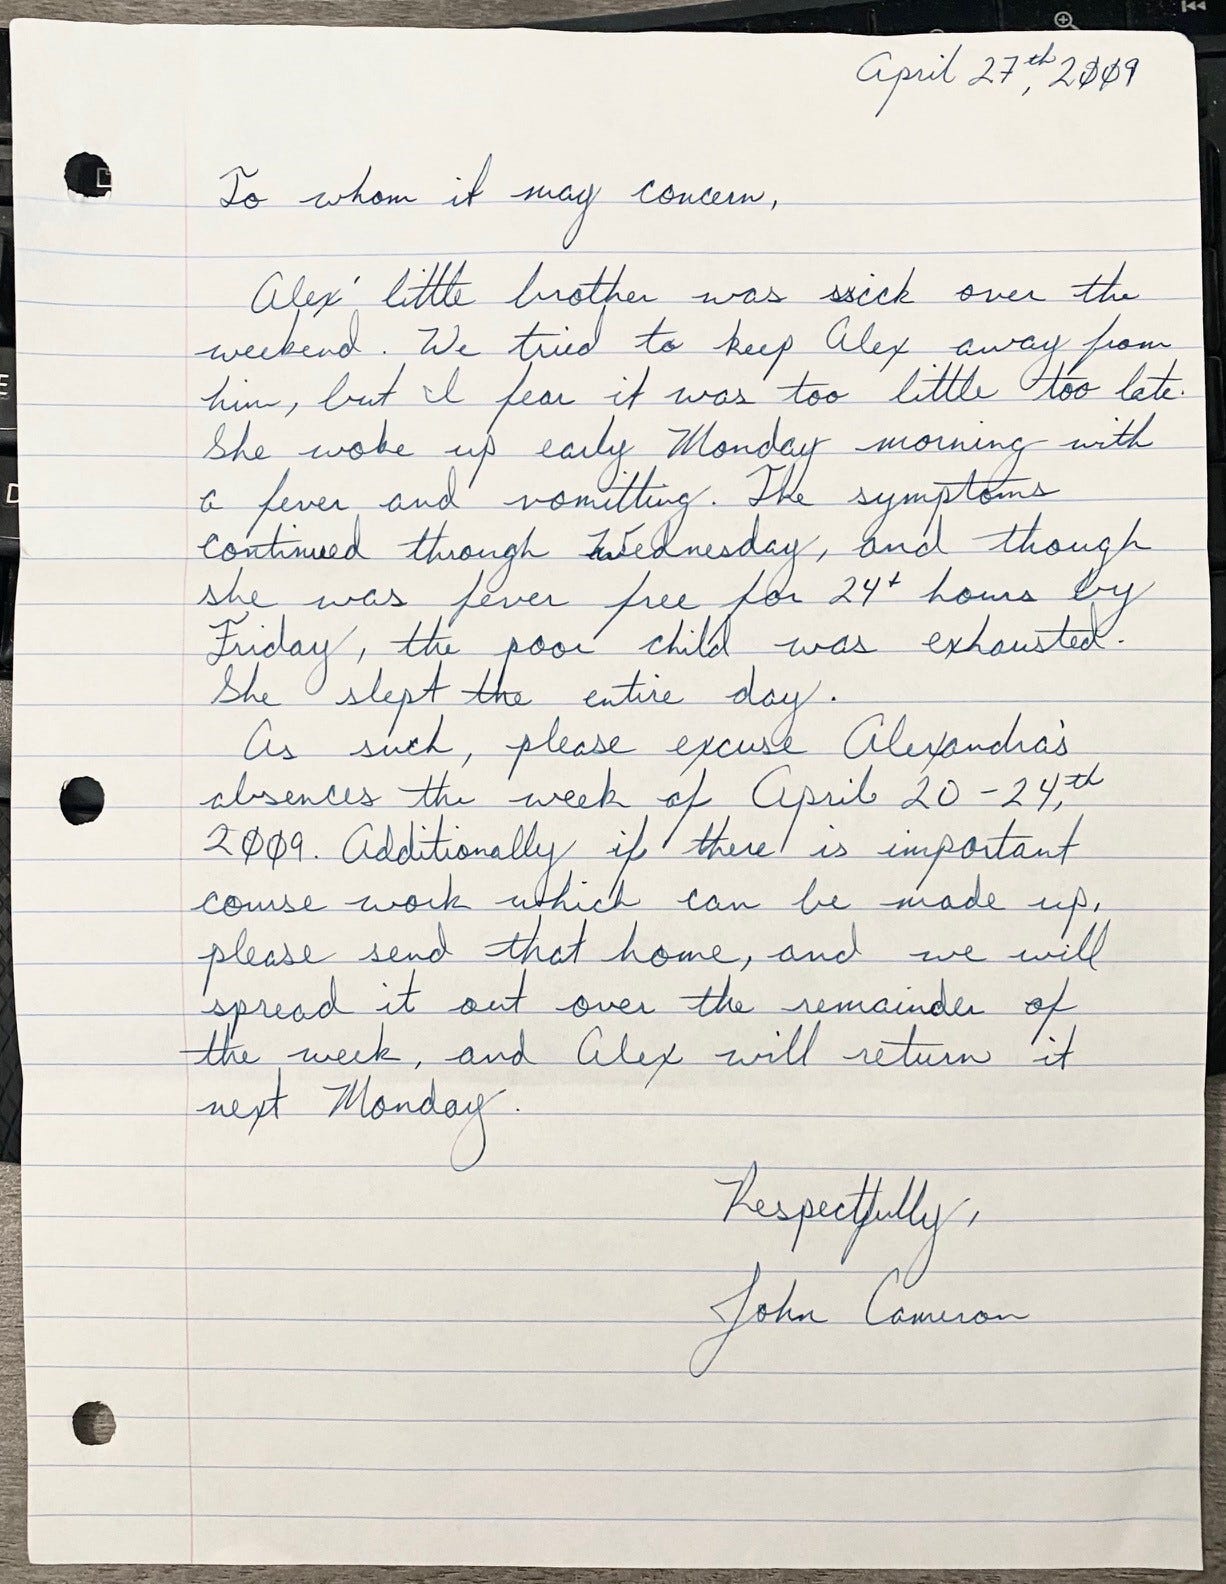 April 27th, 2009
To whom it may concern,
Alex' little brother was sick over the
weekend. We tried to keep Alex away from
him, but I fear it was too little too late.
She woke up early Monday morning with
a fever and vomitting. The symptoms
continued through Wednesday, and though
she was fever free for 24+ hours by
Friday, the poor child was exhausted.
She slept the entire day.
As such, please excuse Alexandra's
absences the week of April 20-24th,
2009. Additionally if there is important
course work which can be made up,
please send that home, and we will
spread it out over the remainder of
the week, and Alex will return it
next Monday.
Respectfully,
John Cameron